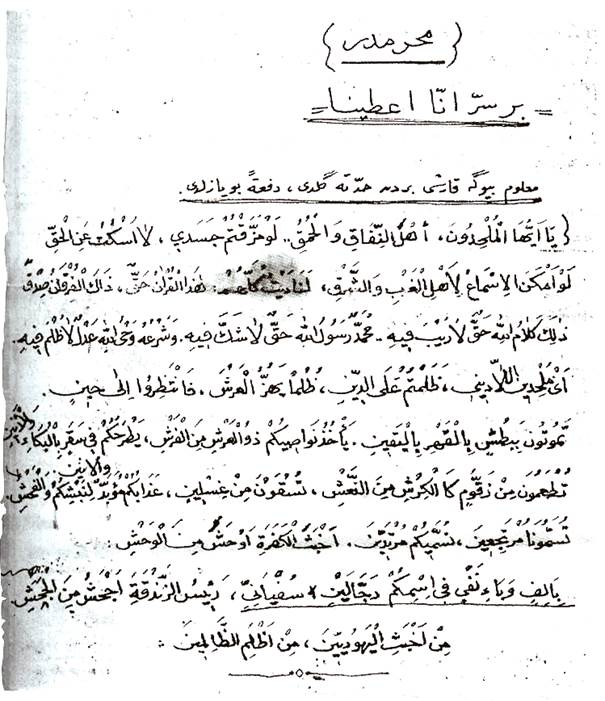 { محرمدر }
= بر سرّ انّا اعطينا =
معلوم بيوگه قارشى بردن حدّته گلدى، دفعةً بو يازلدى.
{ يَا اَيُّهَا الْمُلْحِدُونَ، أَهْلَ النِّفَاقِ وَ الْحُمُقِ.. لَوْ مَزَّقْتُمْ جَسَدِي، لَا اَسْكُتُ عَنِ الْحَقِّ
لَوْ اَمْكَنَ الْاِسْمَاعُ لِاَهْلِ الْغَرْبِ وَ الشَّرْقِ، لَنَادَيْتُ كُلَّهُمْ: هٰذَا الْقُرْاٰنُ حَقٌّ، ذَاكَ الْفُرْقَانُ صِدْقٌ
ذٰلِكَ كَلَامُ اللّٰهِ حَقٌّ لَارَيْبَ فِيهِ. مُحَمَّدٌ رَسُولُ اللّٰهِ حَقٌّ لَا شَكَّ فِيهِ. وَشَرْعُهُ وَحْىُ اللّٰهِ عَدْلٌ لَا ظُلْمَ فِيهِ.
اَىْ مُلْحِدِينَ اللَّادِينِى، ظَلَمْتُمْ عَلَى الدِّينِ، ظُلْمًا يَهُزُّ الْعَرْشَ. فَانْتَظِرُوا اِلٰى حِينٍ.
تَمُوتُونَ بِبَطْشٍ بِالْقَهْرِ بِالْيَقِينِ. يَأْخُذُ نَوَاصِيَكُمْ ذُو الْعَرْشِ مِنَ الْفَرْشِ، يَطْرَحُكُمْ فِى سَقَرَ بِالْبُكَاءِ
وَالْاَنِينِ
تُطْعَمُونَ مِنْ زَقُّومٍ كَالْكِرْشِ مِنَ النَّعْشِ، تُسْقَوْنَ مِنْ غِسْلِينٍ، عَذَابُكُمْ مُؤَبَّدٌ لِنَبْشِكُمْ وَالْفُحْشِ.
تُسَمُّونَا مُرْتَجِعِينَ، نُسَمِّيكُمْ مُرْتَدِّينَ. اَخْبَثُ الْكَفَرَةِ اَوْحَشُ مِنَ الْوَحْشِ:
بِالِفٍ وَيَاءٍ نَفْىٍ فِى اِسْمِكُمْ دَجَّالَيْنِ * سُفْيَانِىٌّ، رَئِيسُ الزَّنْدَقَةِ اَجْحَشُ مِنَ الْجَحْشِ
مِنْ اَخْبَثِ الْيَهُودِيِّينَ، مِنْ اَظْلَمِ الظَّالِمِينَ :